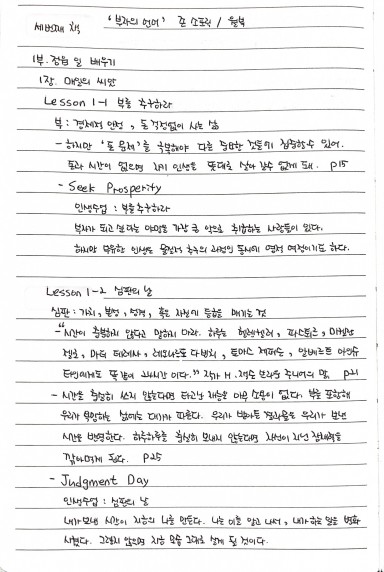 세번째 책 '부자의 언어' 존 소포릭 / 윌북
1부. 정원 일 배우기
1장. 매일의 씨앗
Lesson 1-1 부를 추구하라
부 : 경제적 안정, 돈 걱정없이 사는 삶
- 하지만 '돈 문제'를 극복해야 다른 중요한 것들에 집중할 수 있어.
돈과 시간이 없으면 자기 인생을 뜻대로 살아 갈수 없게 돼. p15
- Seek Prosperity
인생수업 : 부를 추구하라
부자가 되고 싶다는 야망을 가장 큰 악으로 취급하는 사람들이 있다.
하지만 부유한 인생은 물질적 추구의 과정인 동시에 영적 여정이기도 하다.
Lesson 1-2 심판의 날
심판 : 가치, 본성, 성격, 혹은 자질에 등급을 매기는 것
- "시간이 충분하지 않다고 말하지 마라. 하루는 헬렌켈러, 파스퇴르, 미켈란
젤로, 마더 테레사, 레오나르도 다빈치, 토머스 제퍼슨, 알베르트 아인슈
타인에게도 똑같이 24시간 이다." 작가 H. 잭슨 브라운 주니어의 말 p21
- 시간을 충실히 쓰지 않는다면 타고난 재능은 아무 소용이 없다. 부를 포함해
우리가 욕망하는 삶에는 대가가 따른다. 우리가 받아든 결과물은 우리가 보낸
시간을 반영한다. 하루하루를 충실히 보내지 않는다면 자신이 지닌 잠재력을
깎아먹게 된다. p25
- Judgment Day
인생수업 : 심판의 날
내가 보낸 시간이 지금의 나를 만든다. 나는 이를 알고 나서, 내가 하는 일을 변화
시켰다. 그렇지 않으면 지금 모습 그대로 살게 될 것이다.